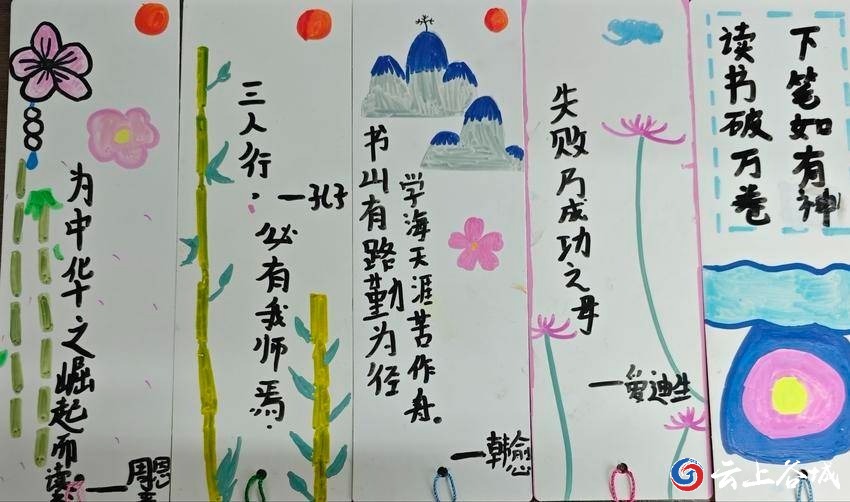 为中华之崛起而读
—周恩
三人行，
必有我师焉.
—孔子
书山有路勤为径
学海天涯苦作舟.
—韩愈
失败乃成功之母
—爱迪生
读书破万卷
下笔如有神
云上谷城